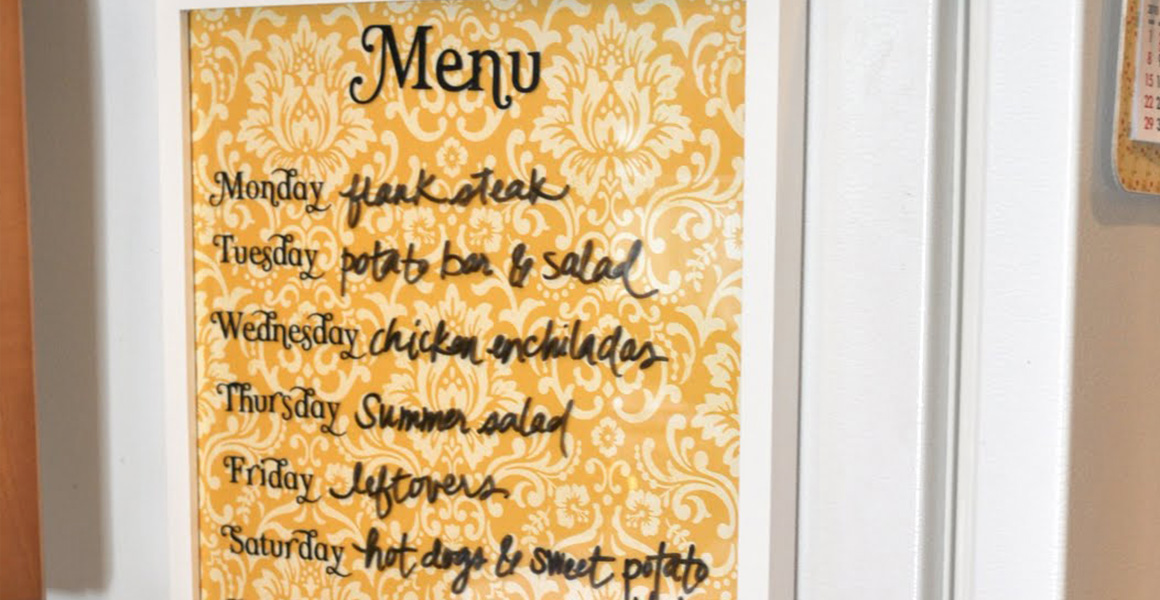 Menu
Monday flank steak
Tuesday potato bar & salad
Wednesday chicken enchiladas
Thursday Summer salad
Friday leftovers
Saturday hot dogs & sweet potato
8
15
22
29